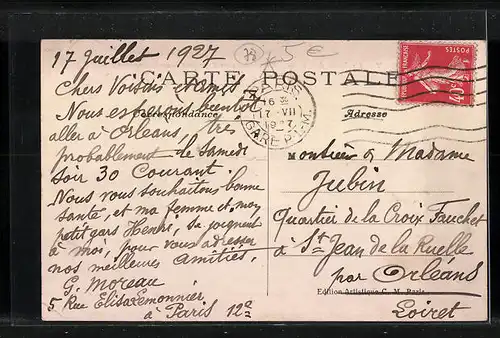 17 Juillet 1927
78
5 €
CARTE POSTALE
Chers Voisins et amis
Nous espérons bientôt
Correspondance
aller à Orléans, très
probablement le Samedi
soir 30 Courant.
Nous vous souhaitons bonne
santé, et ma femme et mon
petit gars Henri, se joignent
à moi, pour vous adresser
nos meilleures amitiés,
G. Moreau
5 Rue Elisa Lemonnier
à Paris 12e
PARIS
16
17 - VII
1927
GARE P.L.M.
POSTES
40c
Adresse
Monsieur & Madame
Jubin
Quartier de la Croix Fauchet
à St Jean de la Ruelle
par Orléans
Edition Artistique C. M. Paris
Loiret